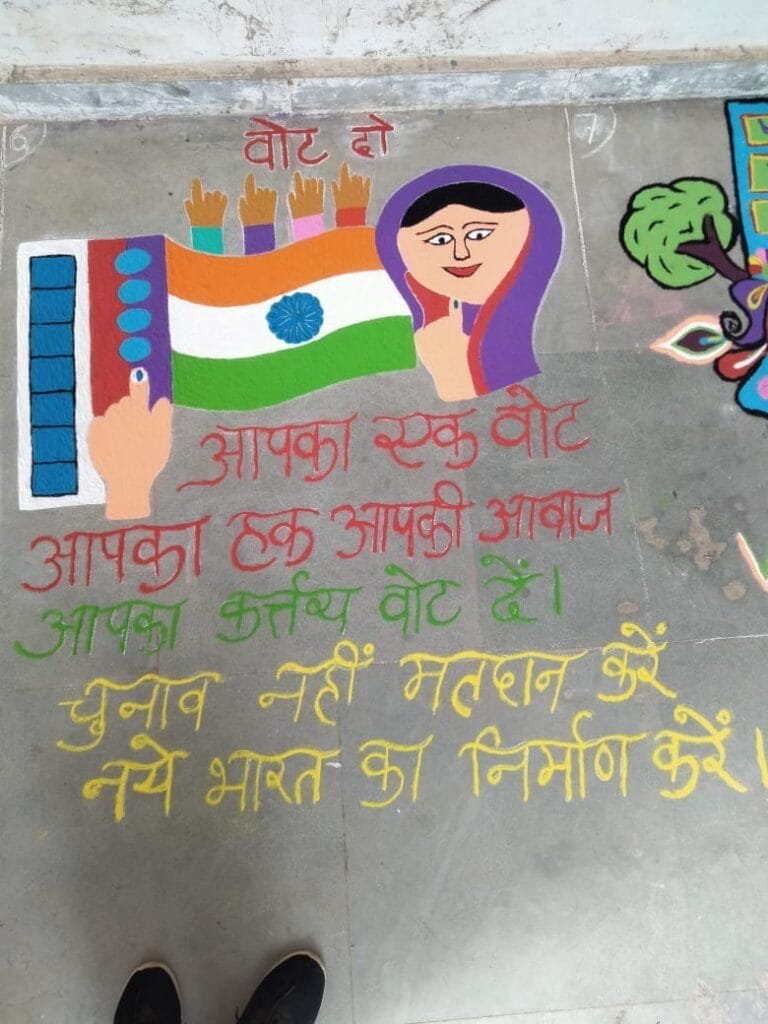 6
7
वोट दो
आपका एक वोट
आपका हक आपकी आवाज
आपका कर्त्तव्य वोट दें।
चुनाव नहीं मतदान करें
नये भारत का निर्माण करें।